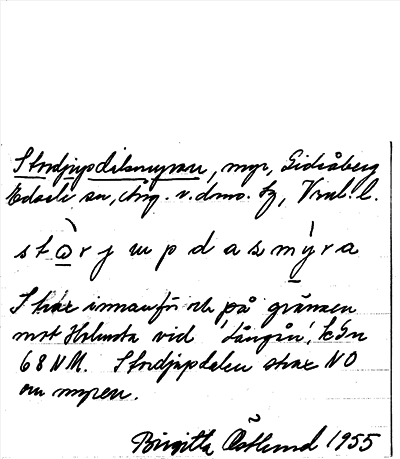 Stordjupdalsmyran, myr, Gideåberg
Edsele sn, Ång. v.dms. tg, Vnl. l.
stɔ̀rjupdasmýra
Strax innanför och på gränsen
mot Helsunta vid 'Långån', kån
68 NM. Stordjupdalen strax NO
om myren.
Birgitta Östlund 1955